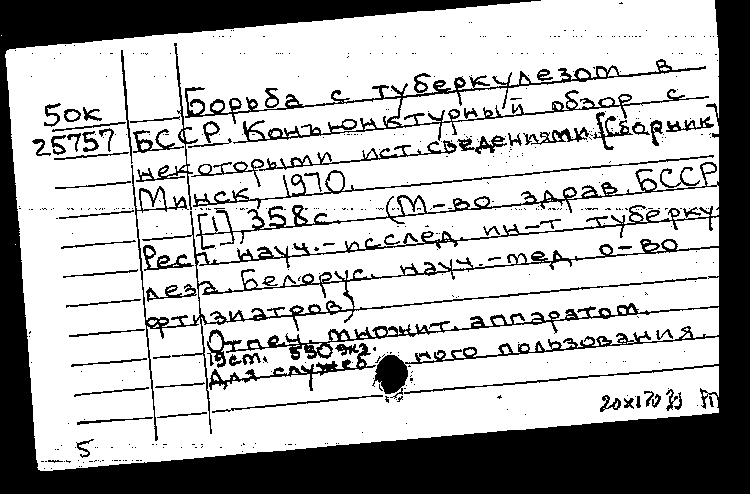 Борьба с туберкулезом в
50к
25757
БССР. Конъюнктурный обзор с
некоторыми ист. сведениями. [Сборник]
Минск, 1970.
[1], 358 с. (М-во здрав. БССР.
Респ. науч.-исслед. ин-т туберку
леза. Белорус. науч.-мед. о-во
фтизиатров)
Отпеч. множит. аппаратом.
550 экз.
Для служебного пользования.
20х170
5